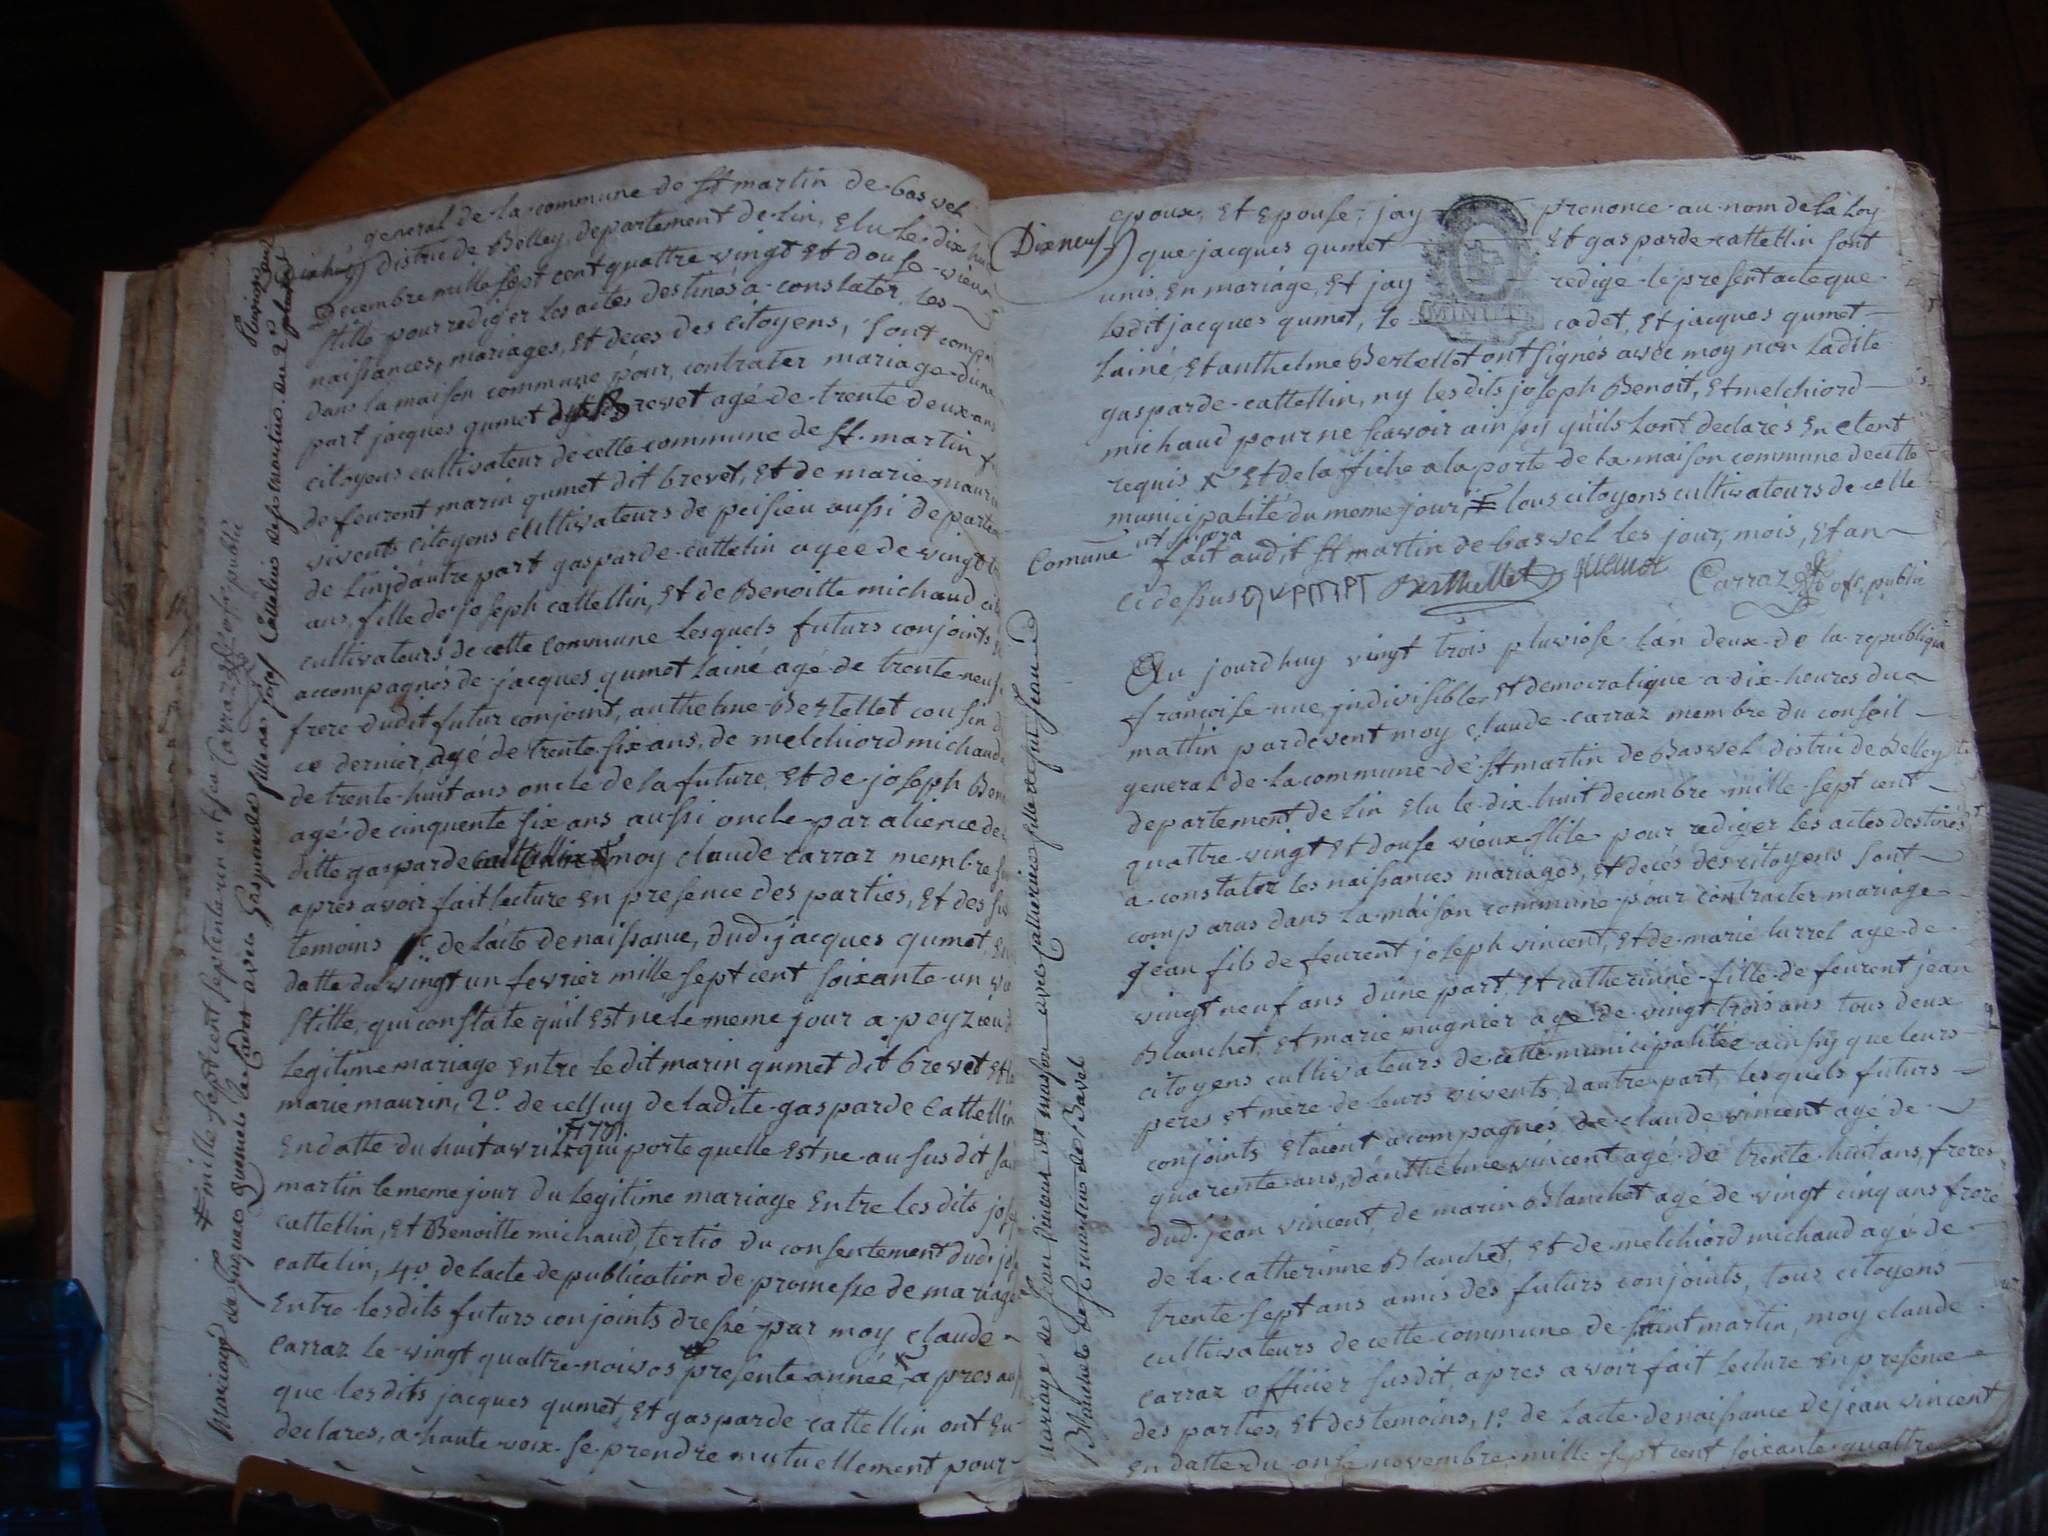 general de la commune de st martin de bavel
Dixhuit
distric de Belley, departement de Lin, Elu le dix huit
Decembre mille sept cent quattre vingt Et douse vieux
stille pour rediger les actes destinés a constater les
naissances, mariages, Et deces des citoyens, sont compa
dans la maison commune pour contrater mariage dune
part jacques qumet dit Brevet agé de trente deux ans
citoyens cultivateur de cette commune de st. martin f
de feurent marin qumet dit brevet, Et de marie maurin
vivents citoyens cultivateurs de peisieu aussi departem
de Lin, dautre part gasparde cattelin agée de vingt
ans, fille de joseph cattellin, Et de Benoitte michaud cit
cultivateurs de cette commune Lesquels futurs conjoints
accompagnés de jacques qumet lainé agé de trente neuf
frere dudit futur conjoint, anthelme Bertellet cousin d
ce dernier, agé de trente six ans, de melchiord michaud
de trente huit ans oncle de la future, Et de joseph Ben
agé de cinquente six ans aussi oncle par alience de
ditte gasparde cattellin moy claude carraz membre
apres avoir fait lecture En presence des parties, Et des su
temoins 1º de lacte de naissance, dud. jacques qumet, En
datte du vingt un fevrier mille sept cent soixante un
stille, qui constate quil Est né le meme jour a peyzieu
legitime mariage Entre ledit marin qumet dit brevet Et
marie maurin, 2º. de celluy de ladite gasparde Cattellin
En datte du huit avril qui porte quelle Est ne au susdit sa
martin le meme jour du legitime mariage Entre les dits jos
cattellin, Et Benoitte michaud, tertio du consentement dud. jos
cattelin, 4º de lacte de publication de promesse de mariage
Entre lesdits futurs conjoints dressé par moy claude
Carraz le vingt quattre nivos presente année, apres
que les dits jacques qumet, Et gasparde cattellin ont Eu
declares, a haute voix se prendre mutuellement pour
mille sept cent septente un ut sea Carraz ofs. public
Mariage de Jacques Qumet le Cadet avec Gasparde fille de Josef Cattelin de st martin du 2d pluviose
Dixneuf
Epoux, Et Epouse, jay prononce au nom de la Loy
que jacques qumet Et gasparde cattellin sont
unis En mariage, Et jay redigé le present acte que
ledit jacques qumet, le cadet, Et jacques qumet
MINUTE
Lainé, Et anthelme Bertellet ont signés avec moy non ladite
gasparde cattellin, ny les dits joseph Benoit, Et melchiord
michaud pour ne scavoir ainsy quils Lont declarés En etent
requis x Et de laffiche a la porte de la maison commune de cette
municipalité du meme jour, tous citoyens cultivateurs de cette
Comune ut supra
fait audit st martin de bavel les jour, mois, Et an
ci dessus qumet Berthellet qumet Carraz ofs. public
Au jourdhuy vingt trois pluviose Lan deux de la republique
francoise une, indivisible, Et democratique a dix heures du
mattin pardevent moy Claude carraz membre du conseil
general de la commune de st martin de Bavel distric de Belley
departement de Lin Elu le dix huit decembre mille sept cent
quattre vingt Et douse vieux stile pour rediger les actes destinés
a constater les naissances mariages, Et decés des citoyens sont
comparus dans la maison commune pour contracter mariage
jean fils de feurent joseph vincent, Et de marie turrel age de
vingt neuf ans dune part, Et catherinne fille de feurent jean
Blanchet, Et marie mugnier age de vingt trois ans tous deux
citoyens cultivateurs de cette municipalitée ainsy que leurs
peres et mere de leurs vivents, dautre part, lesquels futurs
conjoints Etoient acompagnés de claude vincent agé de
quarente ans, danthelme vincent agé de trente huit ans, freres
dud. jean vincent, de marin Blanchet agé de vingt cinq ans frere
de la catherinne Blanchet, Et de melchiord michaud age de
trente sept ans amis des futurs conjoints, tous citoyens
cultivateurs de cette commune de saint martin, moy claude
carraz officier susdit, apres avoir fait lecture en presence
des parties, Et des temoins, 1º. de Lacte de naissance de jean vincent
en datte du onse novembre mille sept cent soixante quattre
mariage de Jean Vincent avec Catherine fille de feu Jean
Blanchet de st martin de Bavel